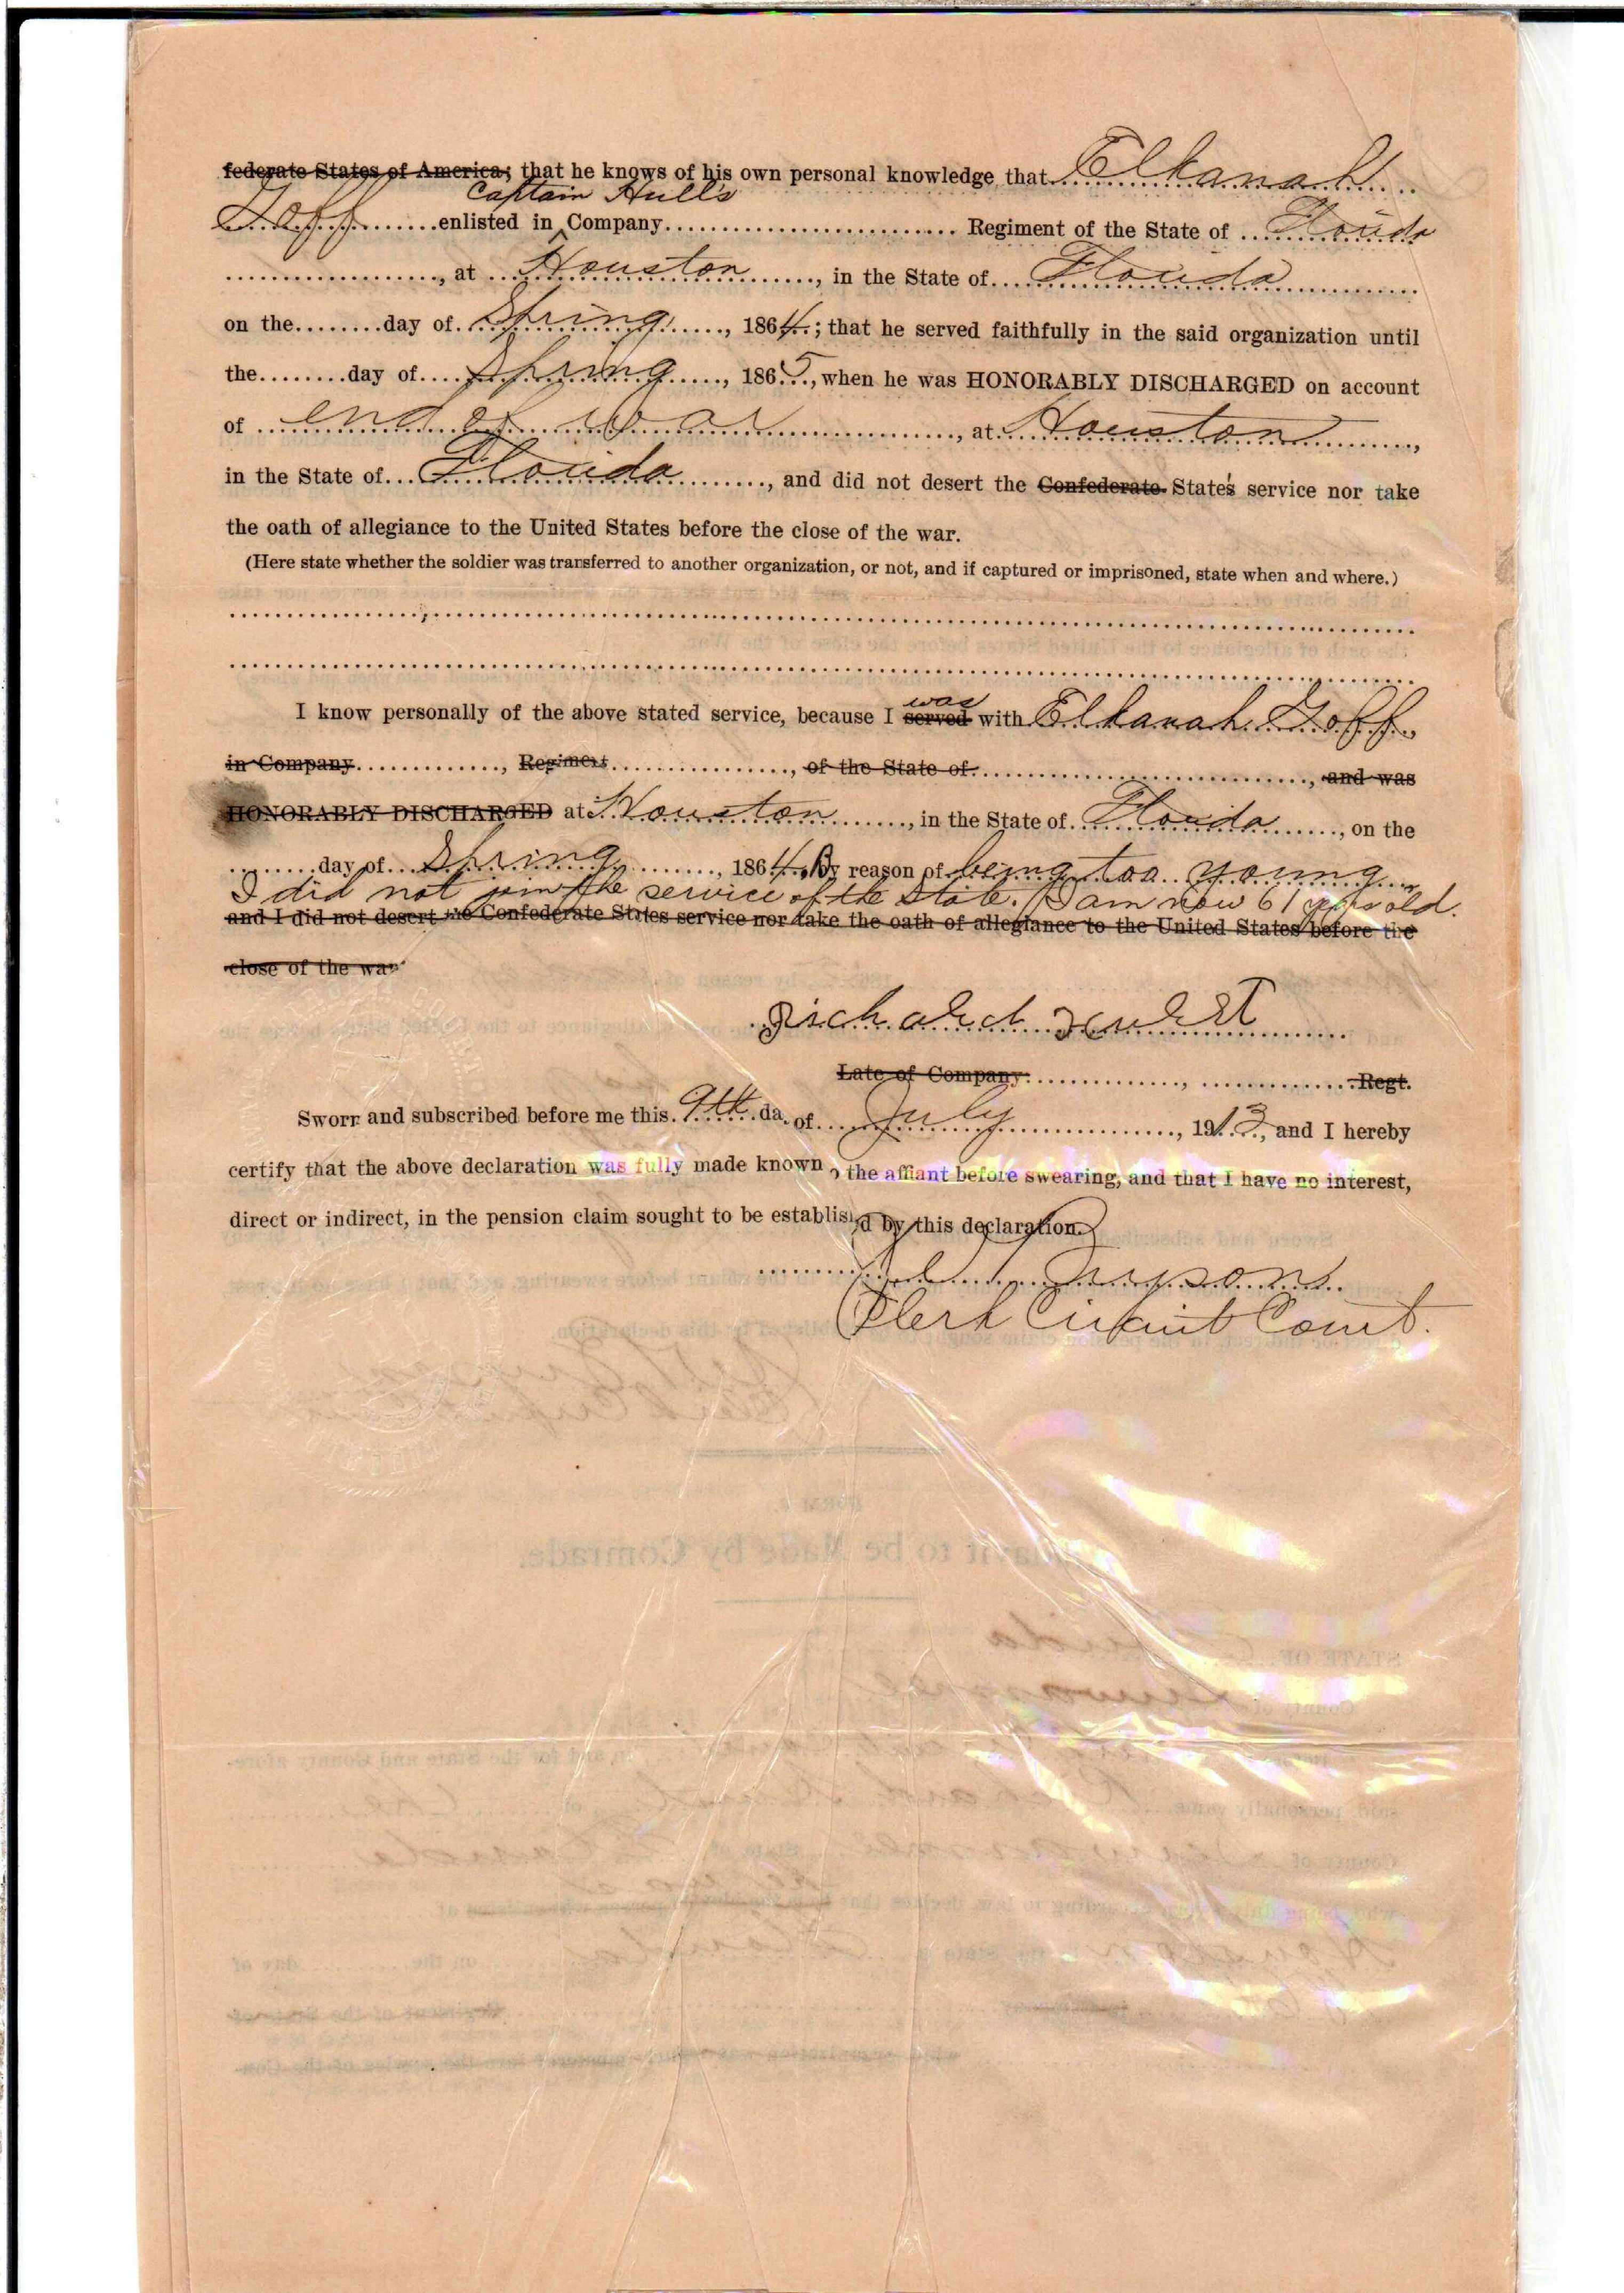 federate States of America; that he knows of his own personal knowledge that Elkanah
Captain Hull's
Goff enlisted in Company Regiment of the State of Florida
, at Houston, in the State of Florida
on the day of Spring, 1864; that he served faithfully in the said organization until
the day of Spring, 1865, when he was HONORABLY DISCHARGED on account
of end of war, at Houston,
in the State of Florida, and did not desert the Confederate State's service nor take
the oath of allegiance to the United States before the close of the war.
(Here state whether the soldier was transferred to another organization, or not, and if captured or imprisoned, state when and where.)
was
I know personally of the above stated service, because I served with Elkanah Goff,
in Company, Regiment, of the State of, and was
HONORABLY DISCHARGED at Houston, in the State of Florida, on the
day of Spring, 1864, By reason of being too young
I did not join the service of the State. I am now 61 years old.
and I did not desert the Confederate States service nor take the oath of allegiance to the United States before the
close of the war
Richard
Late of Company, Regt.
Sworn and subscribed before me this 9th da of July, 1913, and I hereby
certify that the above declaration was fully made known o the affiant before swearing, and that I have no interest,
direct or indirect, in the pension claim sought to be establis d by this declaration.
Clerk Circuit Court.